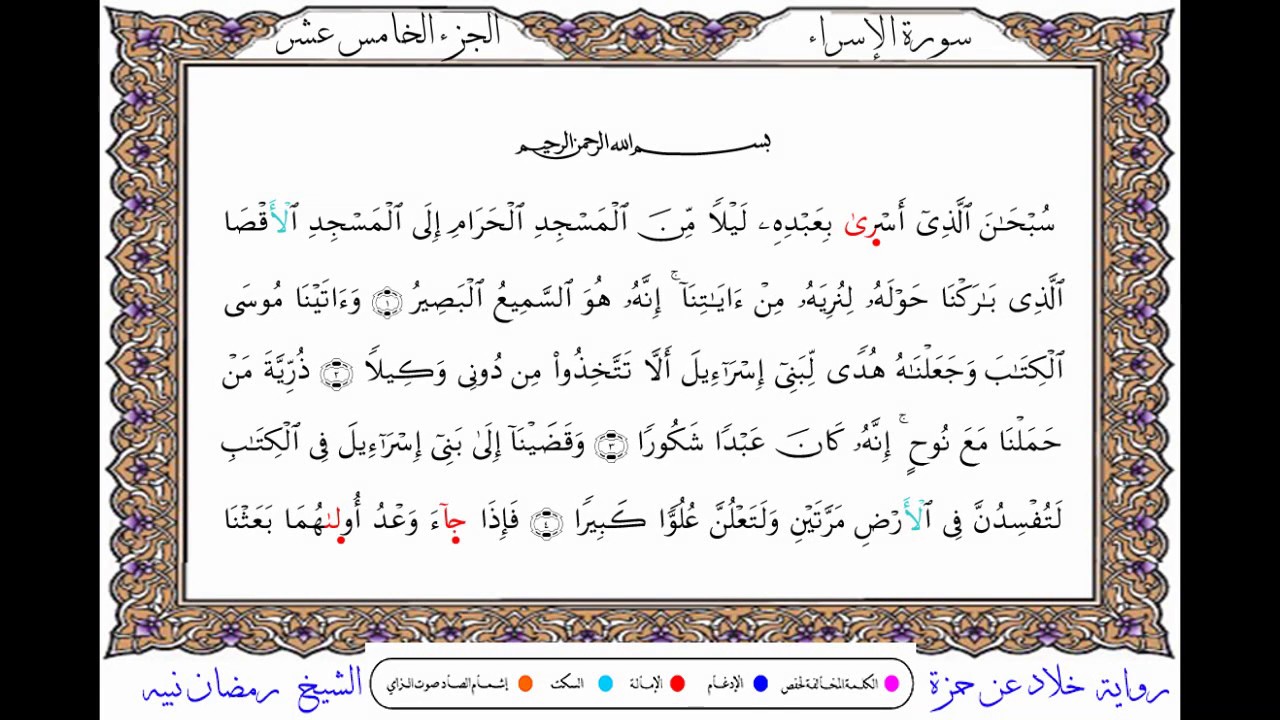 سورة الإسراء
الجزء الخامس عشر
بسم الله الرحمن الرحيم
سُبْحَٰنَ ٱلَّذِىٓ أَسْرِىٰ بِعَبْدِهِۦ لَيْلًا مِّنَ ٱلْمَسْجِدِ ٱلْحَرَامِ إِلَى ٱلْمَسْجِدِ ٱلْأَقْصَا
ٱلَّذِى بَٰرَكْنَا حَوْلَهُۥ لِنُرِيَهُۥ مِنْ ءَايَٰتِنَآ ۚ إِنَّهُۥ هُوَ ٱلسَّمِيعُ ٱلْبَصِيرُ ١ وَءَاتَيْنَا مُوسَى
ٱلْكِتَٰبَ وَجَعَلْنَٰهُ هُدًى لِّبَنِىٓ إِسْرَٰٓءِيلَ أَلَّا تَتَّخِذُوا۟ مِن دُونِى وَكِيلًا ٢ ذُرِّيَّةَ مَنْ
حَمَلْنَا مَعَ نُوحٍ ۚ إِنَّهُۥ كَانَ عَبْدًا شَكُورًا ٣ وَقَضَيْنَآ إِلَىٰ بَنِىٓ إِسْرَٰٓءِيلَ فِى ٱلْكِتَٰبِ
لَتُفْسِدُنَّ فِى ٱلْأَرْضِ مَرَّتَيْنِ وَلَتَعْلُنَّ عُلُوًّا كَبِيرًا ٤ فَإِذَا جَآءَ وَعْدُ أُولَىٰهُمَا بَعَثْنَا
رواية خلاد عن حمزة
الكلمة المخالفة لحفص الإدغام الإمالة السكت إشمام الصاد صوت الزاي
الشيخ رمضان نبيه